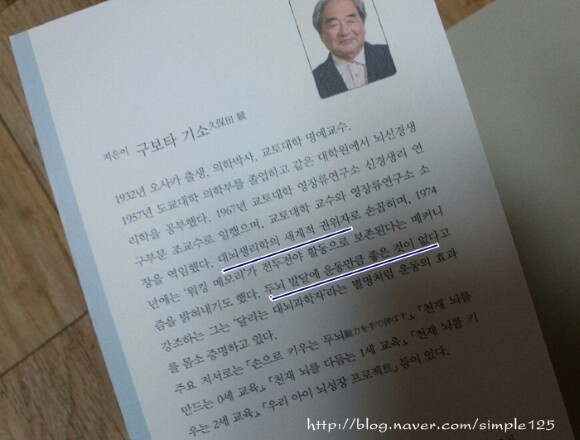 지은이 구보타 기소久保田 競
1932년 오사카 출생. 의학박사. 교토대학 명예교수.
1957년 도쿄대학 의학부를 졸업하고 같은 대학원에서 뇌신경생
리학을 공부했다. 1967년 교토대학 영장류연구소 신경생리 연
구부문 조교수로 일했으며, 교토대학 교수와 영장류연구소 소
장을 역임했다. 대뇌생리학의 세계적 권위자로 손꼽히며, 1974
년에는 '워킹 메모리'가 전두전야 활동으로 보존된다는 메커니
즘을 밝혀내기도 했다. 두뇌 발달에 운동만큼 좋은 것이 없다고
강조하는 그는 '달리는 대뇌과학자'라는 별명처럼 운동의 효과
를 몸소 증명하고 있다.
주요 저서로는 『손으로 키우는 두뇌脳力を手で伸ばす』, 『천재 뇌를
만드는 0세 교육』, 『천재 뇌를 다듬는 1세 교육』, 『천재 뇌를 키
우는 2세 교육』, 『우리 아이 뇌성장 프로젝트』 등이 있다.
http://blog.naver.com/simple125